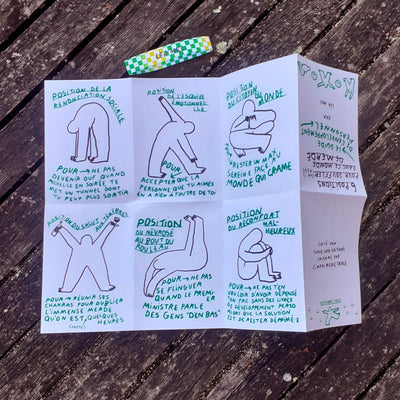 POSITION DE LA
RENONCIATION SOCIALE
POUR → NE PAS
DEVENIR OUF QUAND
EN SOIRÉE TE
MET UN TUNNEL DONT
TU PEUX PLUS SORTIR
POSITION
DE L'ESQUIVE
ÉMOTIONNEL-
LLE
POUR →
ACCEPTER QUE LA
PERSONNE QUE TU AIMES
EN A RIEN A FOUTRE DE TOI
POSITION
DU CITOYEN DU MONDE
POUR →
RESTER UN MAX
SEREIN.E FACE AU
MONDE QUI CRAME
POSITION DU SALUT AUX TÉNÈBRES
POUR → RÉUNIR SES
CHAKRAS POUR OUBLIER
L'IMMENSE MERDE
QU'ON EST, QUELQUES
HEURES
POSITION
DU NÉVROSÉ
AU BOUT DU
ROULEAU
POUR → NE PAS
SE FLINGUER
QUAND LE PREMI-
ER
MINISTRE PARLE
DES GENS "D'EN BAS"
POSITION
DU RÉCONFORT
MAL-
HEUREUX
POUR → NE PAS T'EN
VOULOIR D'AVOIR DÉPENSÉ
TON FRIC DANS DES LIVRES
DE DÉVELOPPEMENT PERSO
ALORS QUE LA SOLUTION
EST DE RESTER DÉPRIMÉ.E
6 POSITIONS
POUR SOUFFLER
DANS CE
MERDIER
DÉVELOPPEMENT
PERSONNEL